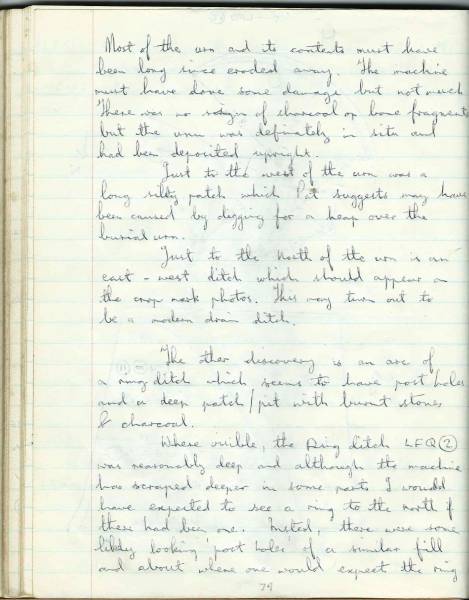 Most of the urn and its contents must have
been long since eroded away. The machine
must have done some damage but not much
There was no sign of charcoal or bone fragments
but the urn was definitely in situ and
had been deposited upright.
Just to the west of the urn was a
long silty patch which Pat suggests may have
been caused by digging for a heap over the
burial urn.
Just to the North of the urn is an
east - west ditch which should appear on
the crop mark photos. This may turn out to
be a modern drain ditch.
The other discovery is an arc of
a ring ditch which seems to have post holes
and a deep patch/pit with burnt stones
& charcoal.
Where visible, the Ring ditch LFQ ②
was reasonably deep and although the machine
has scraped deeper in some parts I would
have expected to see a ring to the north if
there had been one. Instead, there were some
likely looking 'post holes' of a similar fill
and about where one would expect the ring
79